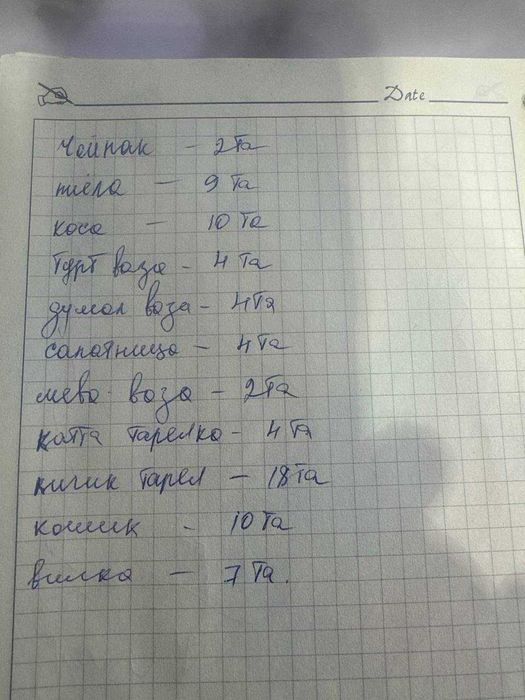 Date
Чейнак - 2 та
пиёла - 9 та
коса - 10 та
Турт ваза - 4 та
думол ваза - 4 та
салатница - 4 та
мева ваза - 2 та
катта тарелка - 4 та
кичик тарел - 18 та
кошик - 10 та
вилка - 7 та.